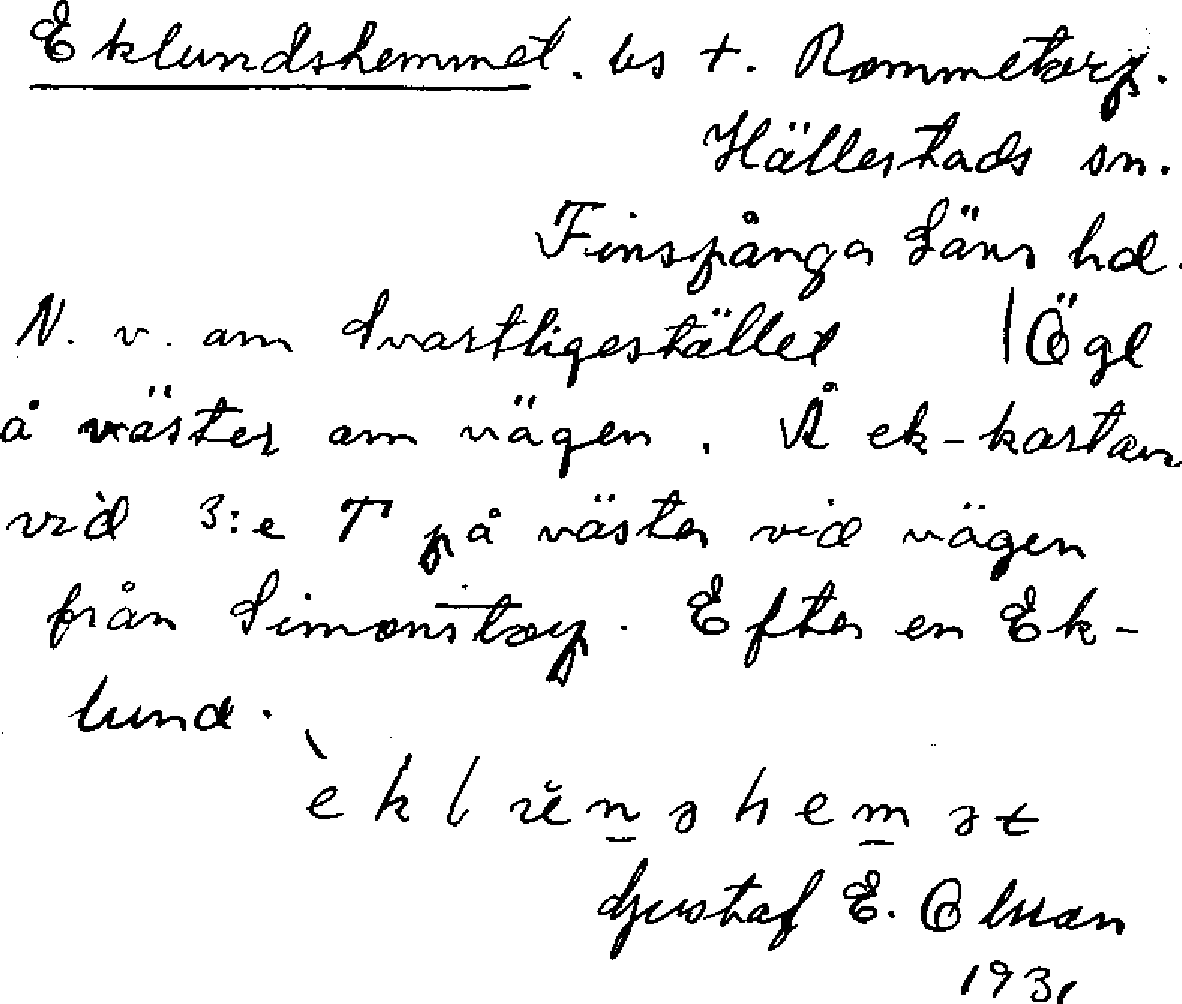 Eklundshemmet. bs t. Rommetorp.
Hällestads sn.
Finspånga Läns hd.
N. v. om Svartligestället | Ögl
å väster om vägen. Å ek-kartan
vid 3:e T på väster vid vägen
från Simonstorp. Efter en Ek-
lund.
Gustaf E. Olsson
1931